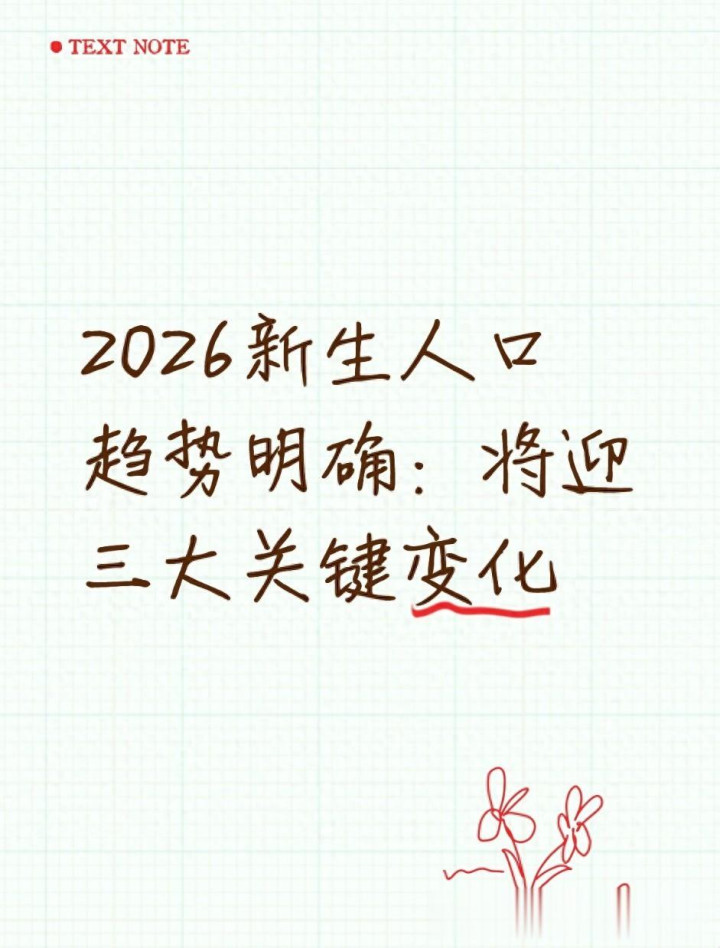 TEXT NOTE
2026新生人口
趋势明确：将迎
三大关键变化